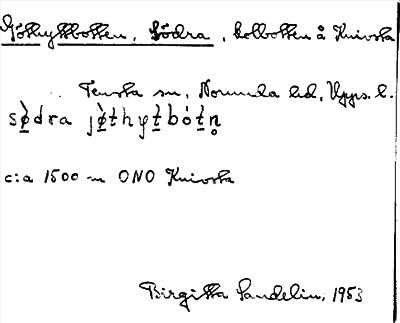 Göthyttbotten, Södra, kolbotten å Knivsta
Tensta sn, Norunda hd, Upps. l.
sö̀dra jö̀thytbótn̥
c:a 1500 m ONO Knivsta
Birgitta Sandelin, 1953